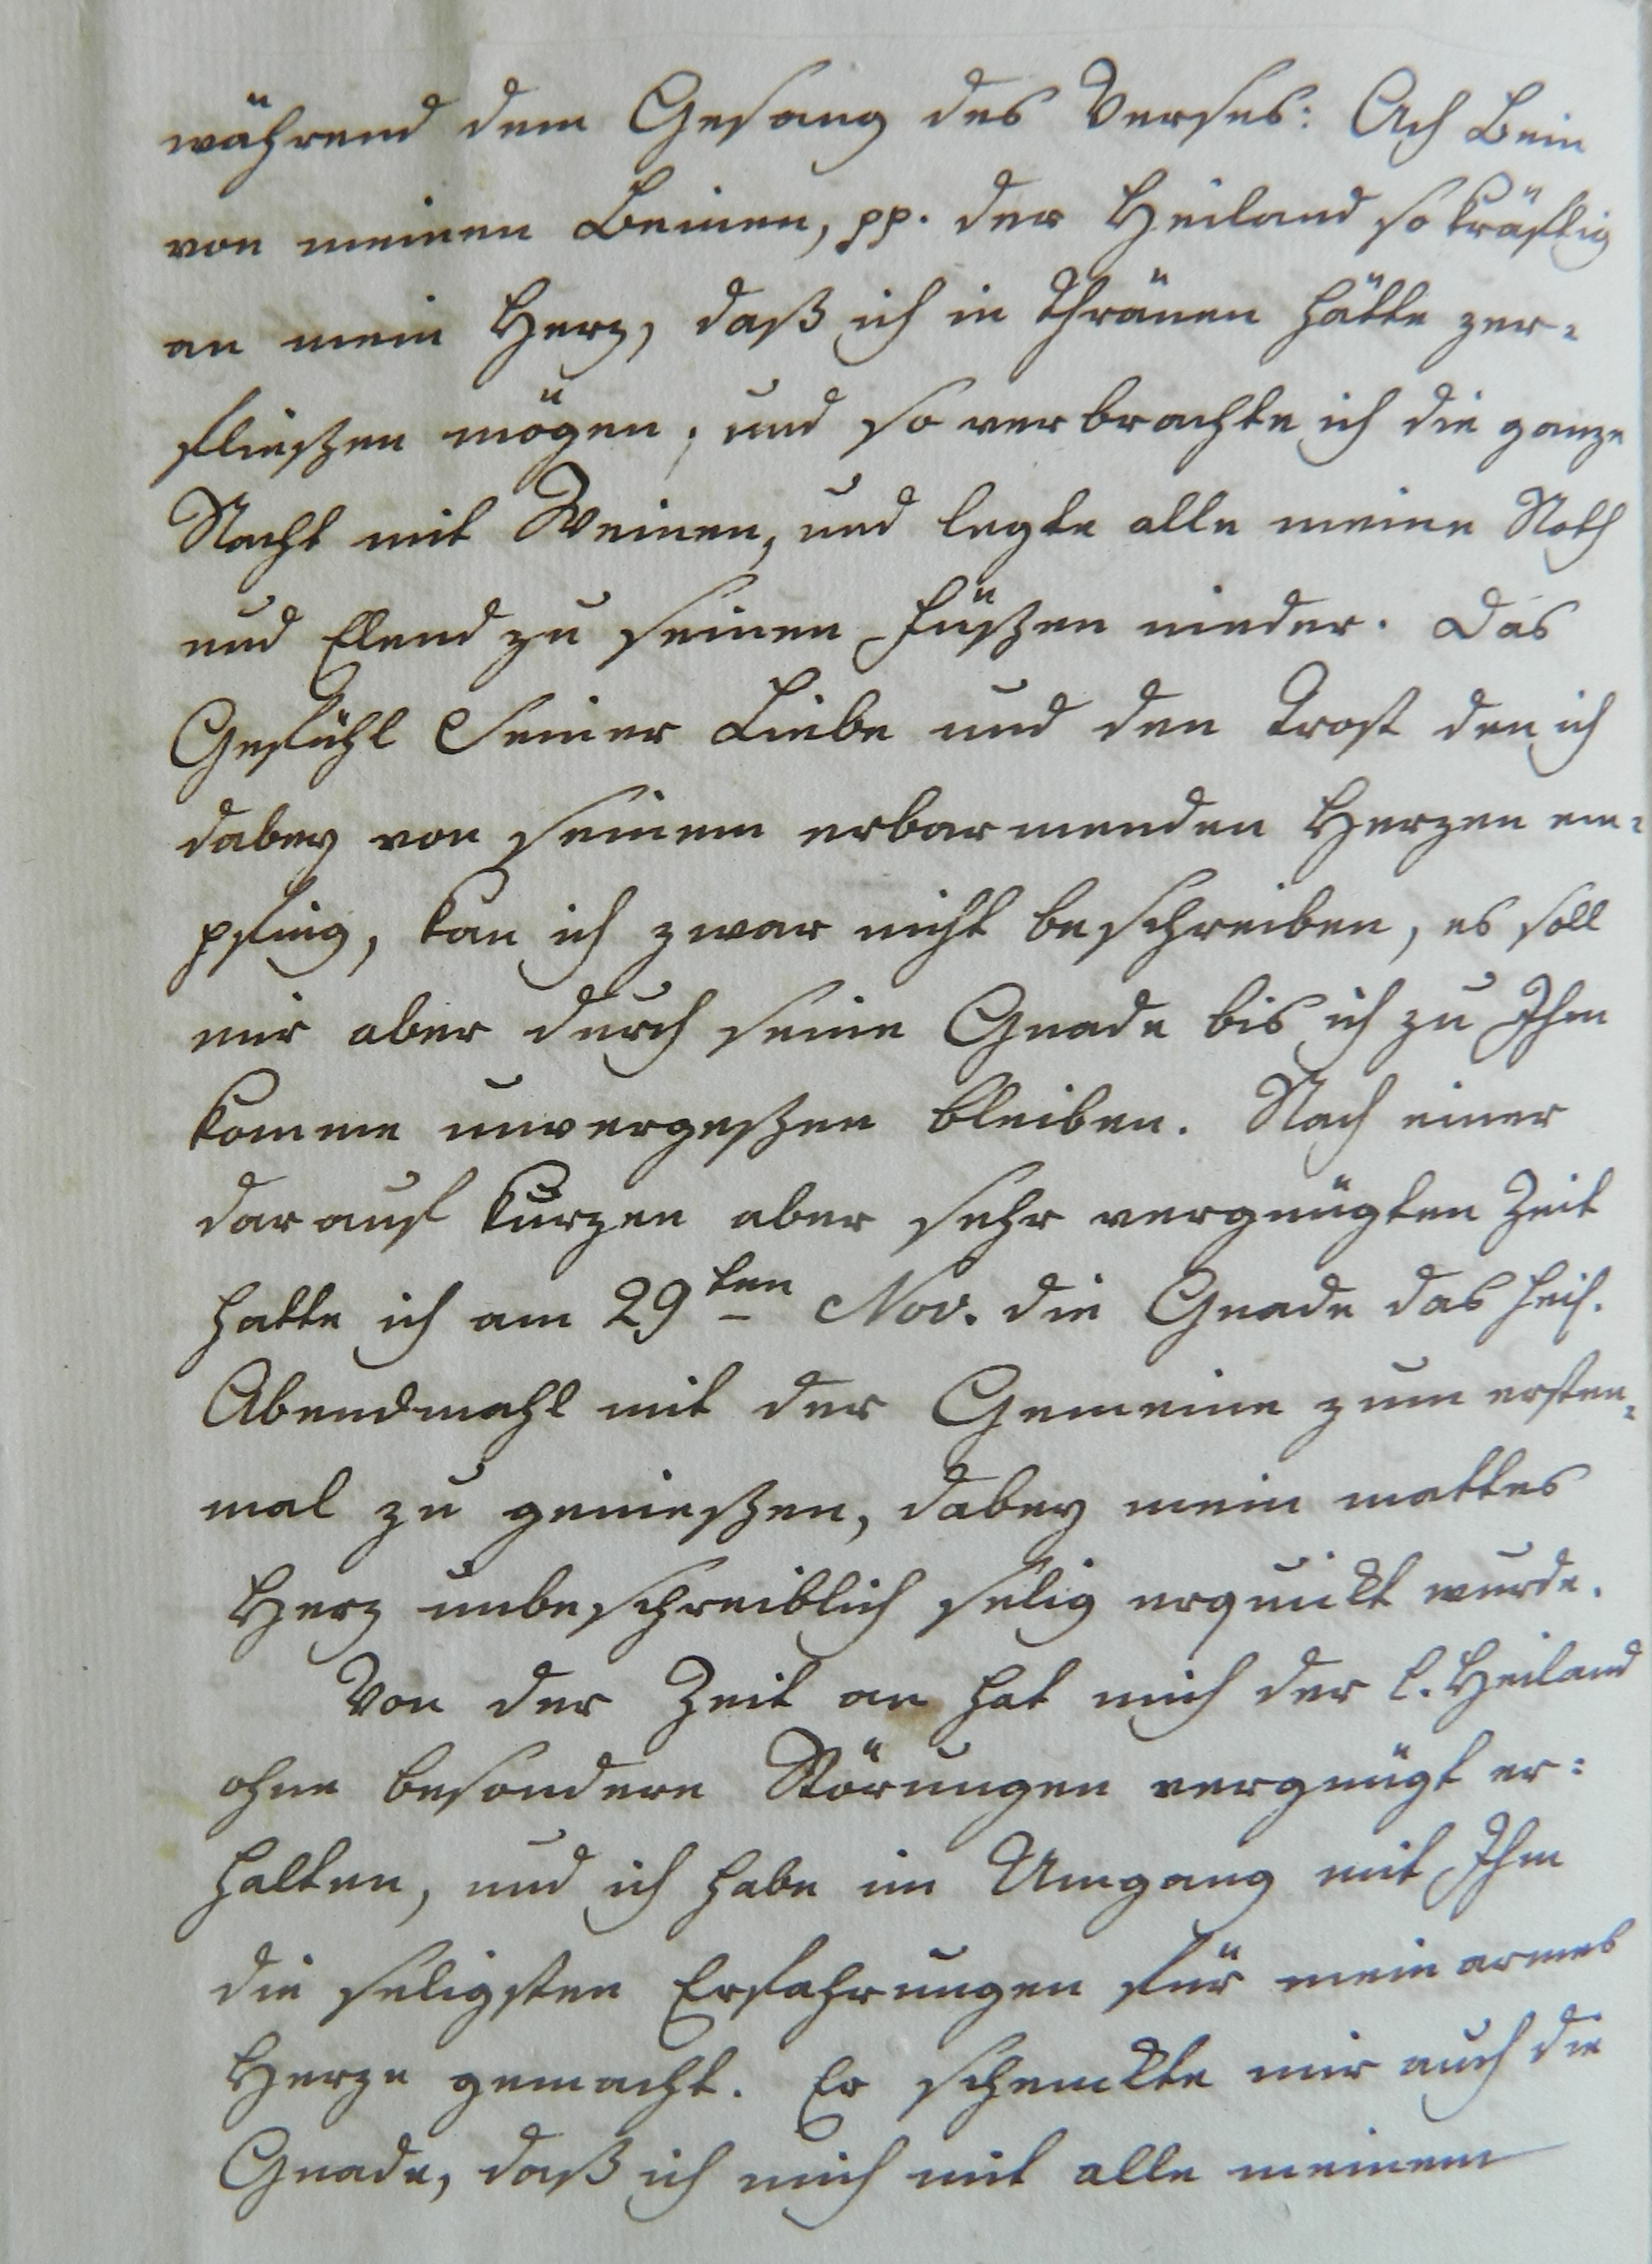 während dem Gesang des Verses: Ach Bein
von meinen Beinen, pp. der Heiland so kräftig
an mein Herz, daß ich in Thränen hätte zer-
fließen mögen, und so verbrachte ich die ganze
Nacht mit Weinen, und legte alle meine Noth
und Elend zu seinen Füßen nieder. Das
Gefühl Seiner Liebe und den Trost den ich
dabey von seinem erbarmenden Herzen em-
pfing, kan ich zwar nicht beschreiben, es soll
mir aber durch seine Gnade bis ich zu Ihm
komme unvergeßen bleiben. Nach einer
darauf kurzen aber sehr vergnügten Zeit
hatte ich am 29ten Nov. die Gnade das heil.
Abendmahl mit der Gemeine zum ersten-
mal zu genießen, dabey mein mattes
Herz unbeschreiblich selig erquickt wurde.
Von der Zeit an hat mich der l. Heiland
ohne besondere Störungen vergnügt er-
halten, und ich habe im Umgang mit Ihm
die seligsten Erfahrungen für mein armes
Herze gemacht. Er schenckte mir auch die
Gnade, daß ich mich mit alle meinem